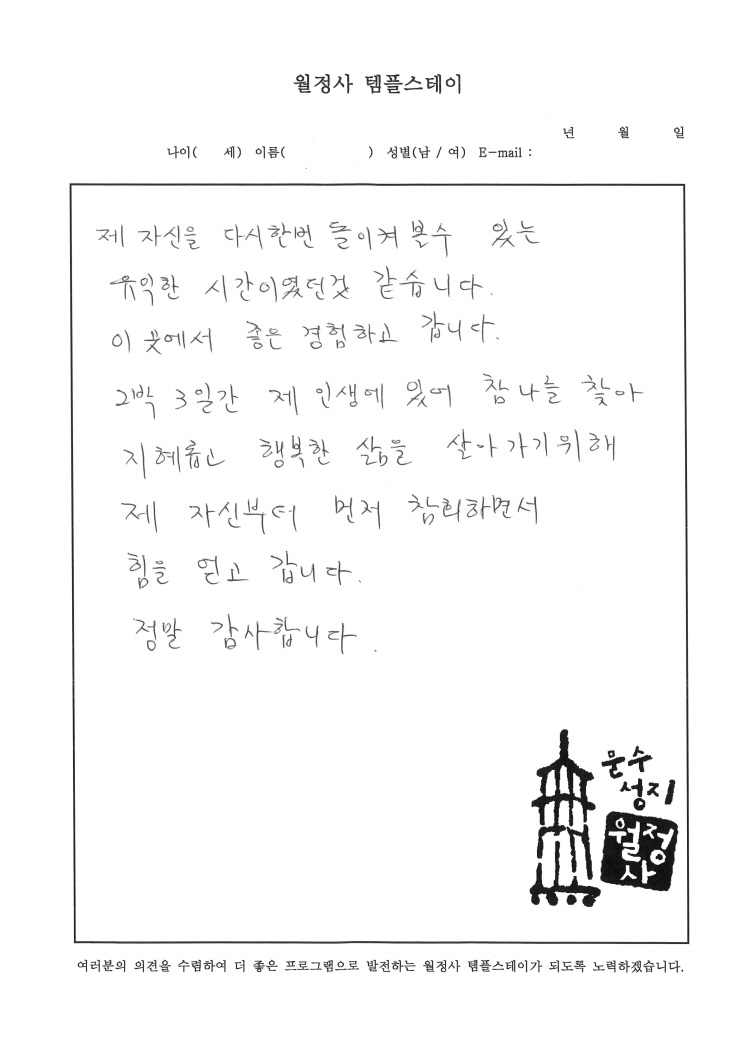 월정사 템플스테이
년 월 일
나이( 세) 이름( ) 성별(남 / 여) E-mail :
제 자신을 다시한번 돌이켜 볼수 있는
유익한 시간이였던것 같습니다.
이 곳에서 좋은 경험하고 갑니다.
2박 3일간 제 인생에 있어 참 나를 찾아
지혜롭고 행복한 삶을 살아가기위해
제 자신부터 먼저 참회하면서
힘을 얻고 갑니다.
정말 감사합니다.
문수
성지
월정
사
여러분의 의견을 수렴하여 더 좋은 프로그램으로 발전하는 월정사 템플스테이가 되도록 노력하겠습니다.